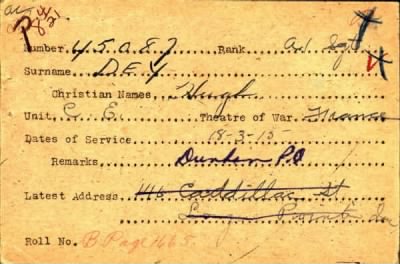 Number 45087 Rank A/Sgt
Surname DEY
Christian Names Hugh
Unit C. E. Theatre of War France
Dates of Service 18-3-15
Remarks Dunden P.O
Latest Address 1116 Caddillac St
Long Point Que
Roll No. B. Page 1665